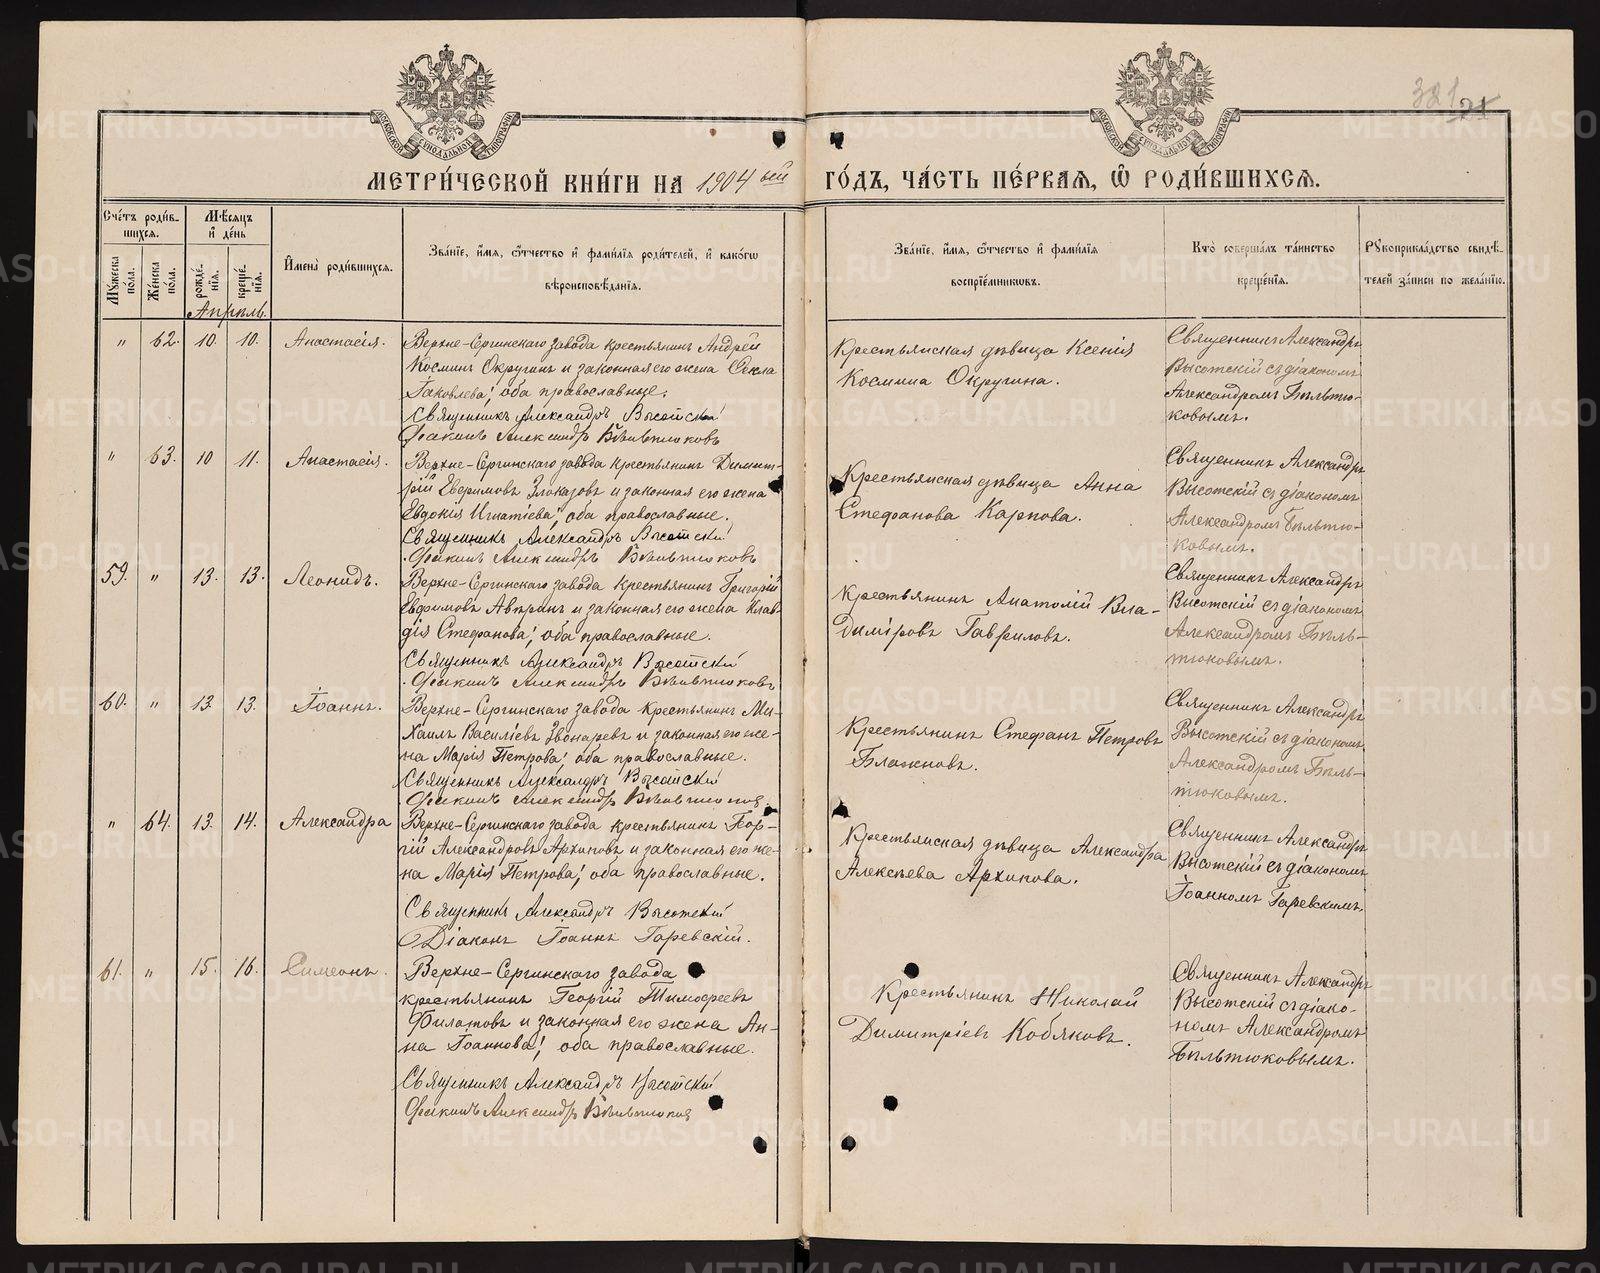 МЕТРИ́ЧЕСКОЙ КНИ́ГИ НА 1904ый ГО́ДЪ, ЧА́СТЬ ПЕ́РВАЯ, Ѽ РОДИ́ВШИХСѦ.
321
21
Сче́тъ роди́в-
шихсѧ.
Мѣ́сѧцъ
и де́нь
Имена̀ роди́вшихсѧ.
Зва́нїе, и҆́мѧ, ѻ҆́тчество и҆ фами́лїѧ роди́телей, и҆ како́гѡ
вѣроисповѣ́данїѧ.
Зва́нїе, и҆́мѧ, ѻ҆́тчество и҆ фами́лїѧ
воспрїе́мникѡвъ.
Кто̀ соверша́лъ та́инство
креще́нїѧ.
Рꙋкоприкла́дство свидѣ́-
телей за́писи по жела́нїю.
Мꙋ́жеска по́ла.
Же́нска по́ла.
рожде́-нїѧ.
креще́-нїѧ.
Апрѣль.
" 62. 10. 10. Анастасія.
Верхне-Сергинскаго завода крестьянинъ Андрей
Косминъ Округинъ и законная его жена Фекла
Іаковлева; оба православные.
Священникъ Александръ Высотскій
Діаконъ Александръ Бѣльтюковъ
Крестьянская дѣвица Ксенія
Космина Округина.
Священникъ Александръ
Высотскій съ діакономъ
Александромъ Бѣльтю-
ковымъ.
" 63. 10 11. Анастасія.
Верхне-Сергинскаго завода крестьянинъ Димит-
рій Евфимовъ Злоказовъ и законная его жена
Евдокія Игнатіева; оба православные.
Священникъ Александръ Высотскій
Діаконъ Александръ Бѣльтюковъ
Крестьянская дѣвица Анна
Стефанова Карпова.
Священникъ Александръ
Высотскій съ діакономъ
Александромъ Бѣльтю-
ковымъ.
59. " 13. 13. Леонидъ.
Верхне-Сергинскаго завода крестьянинъ Григорій
Евфимовъ Аптринъ и законная его жена Клав-
дія Стефанова; оба православные.
Священникъ Александръ Высотскій
Діаконъ Александръ Бѣльтюковъ
Крестьянинъ Анатолій Вла-
диміровъ Гавриловъ.
Священникъ Александръ
Высотскій съ діакономъ
Александромъ Бѣль-
тюковымъ.
60. " 13 13. Іоаннъ.
Верхне-Сергинскаго завода крестьянинъ Ми-
хаилъ Василіевъ Звонаревъ и законная его же-
на Марія Петрова; оба православные.
Священникъ Александръ Высотскій
Діаконъ Александръ Бѣльтюковъ
Крестьянинъ Стефанъ Петровъ
Блажновъ.
Священникъ Александръ
Высотскій съ діакономъ
Александромъ Бѣль-
тюковымъ.
" 64. 13. 14. Александра
Верхне-Сергинскаго завода крестьянинъ Геор-
гій Александровъ Архиповъ и законная его же-
на Марія Петрова; оба православные.
Священникъ Александръ Высотскій
Діаконъ Іоаннъ Гаревскій.
Крестьянская дѣвица Александра
Алексѣева Архипова.
Священникъ Александръ
Высотскій съ діакономъ
Іоанномъ Гаревскимъ.
61. " 15. 16. Симеонъ.
Верхне-Сергинскаго завода
крестьянинъ Георгій Тимофеевъ
Филатовъ и законная его жена Ан-
на Іоаннова; оба православные.
Священникъ Александръ Высотскій
Діаконъ Александръ Бѣльтюковъ
Крестьянинъ Николай
Димитріевъ Кобяковъ.
Священникъ Александръ
Высотскій съ діако-
номъ Александромъ
Бѣльтюковымъ.
METRIKI.GASO-URAL.RU